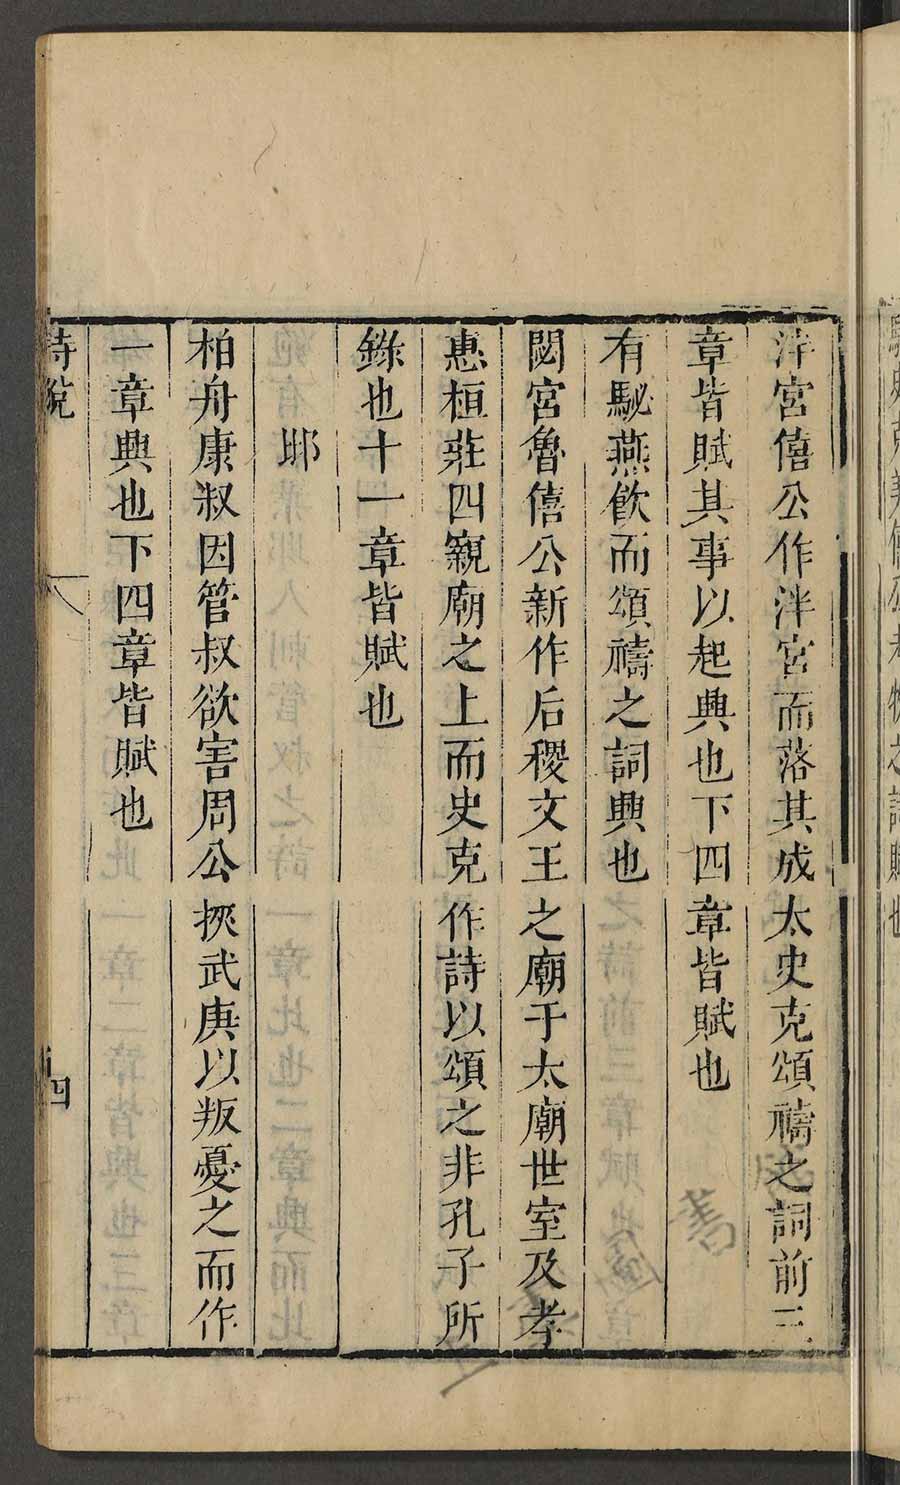 泮宮僖公作泮宮而落其成太史克頌禱之詞前三
章皆賦其事以起興也下四章皆賦也
有駜燕飲而頌禱之詞興也
閟宮魯僖公新作后稷文王之廟于太廟世室及孝
惠桓莊四親廟之上而史克作詩以頌之非孔子所
錄也十一章皆賦也
邶
柏舟康叔因管叔欲害周公挾武庚以叛憂之而作
一章興也下四章皆賦也
詩說
四